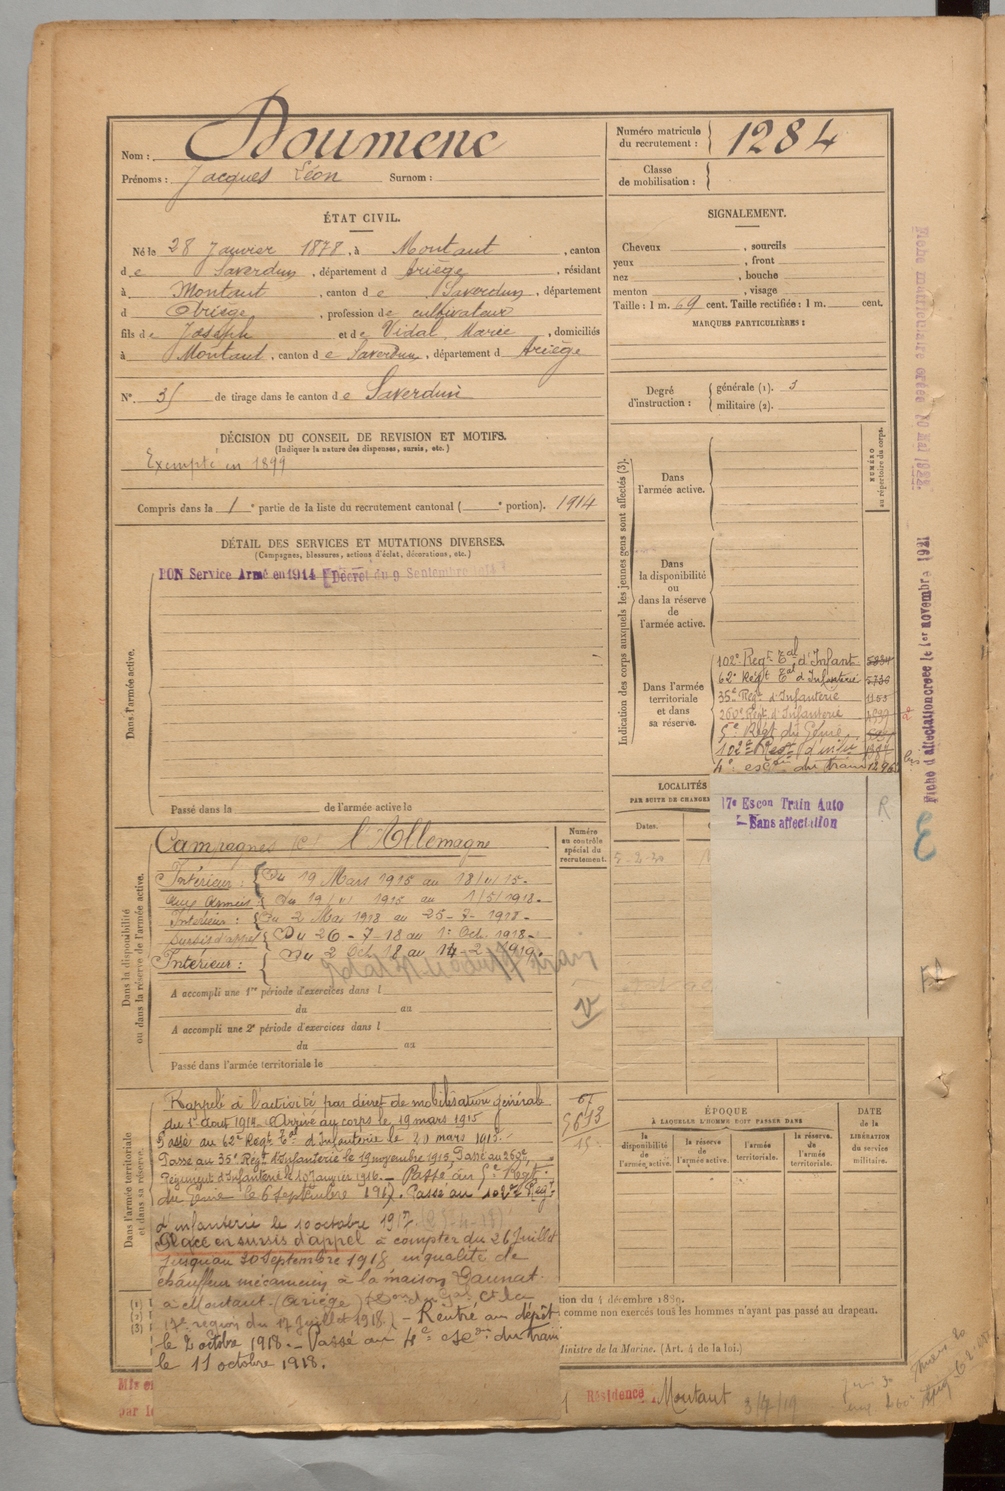 Nom : Doumenc
Prénoms : Jacques Léon Surnom :
Numéro matricule du recrutement : 1284
Classe de mobilisation :
ÉTAT CIVIL.
Né le 28 Janvier 1878, à Montaut, canton
de Saverdun, département d Ariège, résidant
à Montaut, canton de Saverdun, département
d Ariège, profession de cultivateur
fils de Joseph et de Vidal Marie, domiciliés
à Montaut, canton de Saverdun, département d Ariège
N° 35 de tirage dans le canton de Saverdun
SIGNALEMENT.
Cheveux , sourcils
yeux , front
nez , bouche
menton , visage
Taille : 1 m. 69 cent. Taille rectifiée : 1 m. cent.
MARQUES PARTICULIÈRES :
Degré d'instruction :
générale (1). 3
militaire (2).
DÉCISION DU CONSEIL DE REVISION ET MOTIFS.
(Indiquer la nature des dispenses, sursis, etc.)
Exempté en 1899
Compris dans la 1e partie de la liste du recrutement cantonal ( e portion). 1914
DÉTAIL DES SERVICES ET MUTATIONS DIVERSES.
(Campagnes, blessures, actions d'éclat, décorations, etc.)
BON Service Armé en 1914 Décret du 9 Septembre 1914
Dans l'armée active.
Passé dans la de l'armée active le
Indication des corps auxquels les jeunes gens sont affectés (3).
NUMÉRO au répertoire du corps.
Dans l'armée active.
Dans la disponibilité ou dans la réserve de l'armée active.
Dans l'armée territoriale et dans sa réserve.
102e Regt Tal d'Infant
62e Regt Tal d'Infanterie
35e Regt d'Infanterie 1153
260e Regt d'Infanterie
5e Regt du Génie
102e Regt d'infie
4e escon du train
LOCALITÉS
PAR SUITE DE CHANGE
Dates.
17e Escon Train Auto
Sans affectation
R
Campagnes l'Allemagne
Intérieur : Du 19 Mars 1915 au 18/11/15.
aux Armées Du 19/11 1915 au 1/5/1918.
Intérieur : Du 2 Mai 1918 au 25-7-1918.
Sursis d'appel Du 26-7-18 au 1er Oct. 1918
Intérieur : Du 2 Oct 18 au 14-2-1919.
Numéro au contrôle spécial du recrutement.
Dans la disponibilité ou dans la réserve de l'armée active.
A accompli une 1re période d'exercices dans l
du au
A accompli une 2e période d'exercices dans l
du au
Passé dans l'armée territoriale le
V
Dans l'armée territoriale et dans sa réserve.
Rappelé à l'activité par décret de mobilisation générale
du 1er Aout 1914. Arrivé au corps le 19 mars 1915
Passé au 62e Regt Tal d'Infanterie le 20 mars 1915.
Passé au 35e Regt d'Infanterie le 19 novembre 1915. Passé au 260e
Régiment d'Infanterie le 10 Janvier 1916. Passé au 5e Regt
du Génie le 6 Septembre 1917. Passé au 102e Regt
d'infanterie le 10 octobre 1917
Placé en sursis d'appel à compter du 26 Juillet
jusqu'au 30 Septembre 1918 en qualité de
chauffeur mécanicien à la maison Gaunat
à Montaut (Ariège)
17e region du 17 Juillet 1918) - Rentré au dépôt
le 2 octobre 1918. - Passé au 4e escon du train
le 11 octobre 1918.
ÉPOQUE
À LAQUELLE L'HOMME DOIT PASSER DANS
la disponibilité de l'armée active.
la réserve de l'armée active.
l'armée territoriale.
la réserve de l'armée territoriale.
DATE de la LIBÉRATION du service militaire.
(1)
(2)
(3)
tion du 4 décembre 1889.
comme non exercés tous les hommes n'ayant pas passé au drapeau.
Ministre de la Marine. (Art. 4 de la loi.)
Résidence Montaut
Fiche matriculaire créée 10 Mai 1922.
Fiche d'affectation créée le 1er novembre 1921